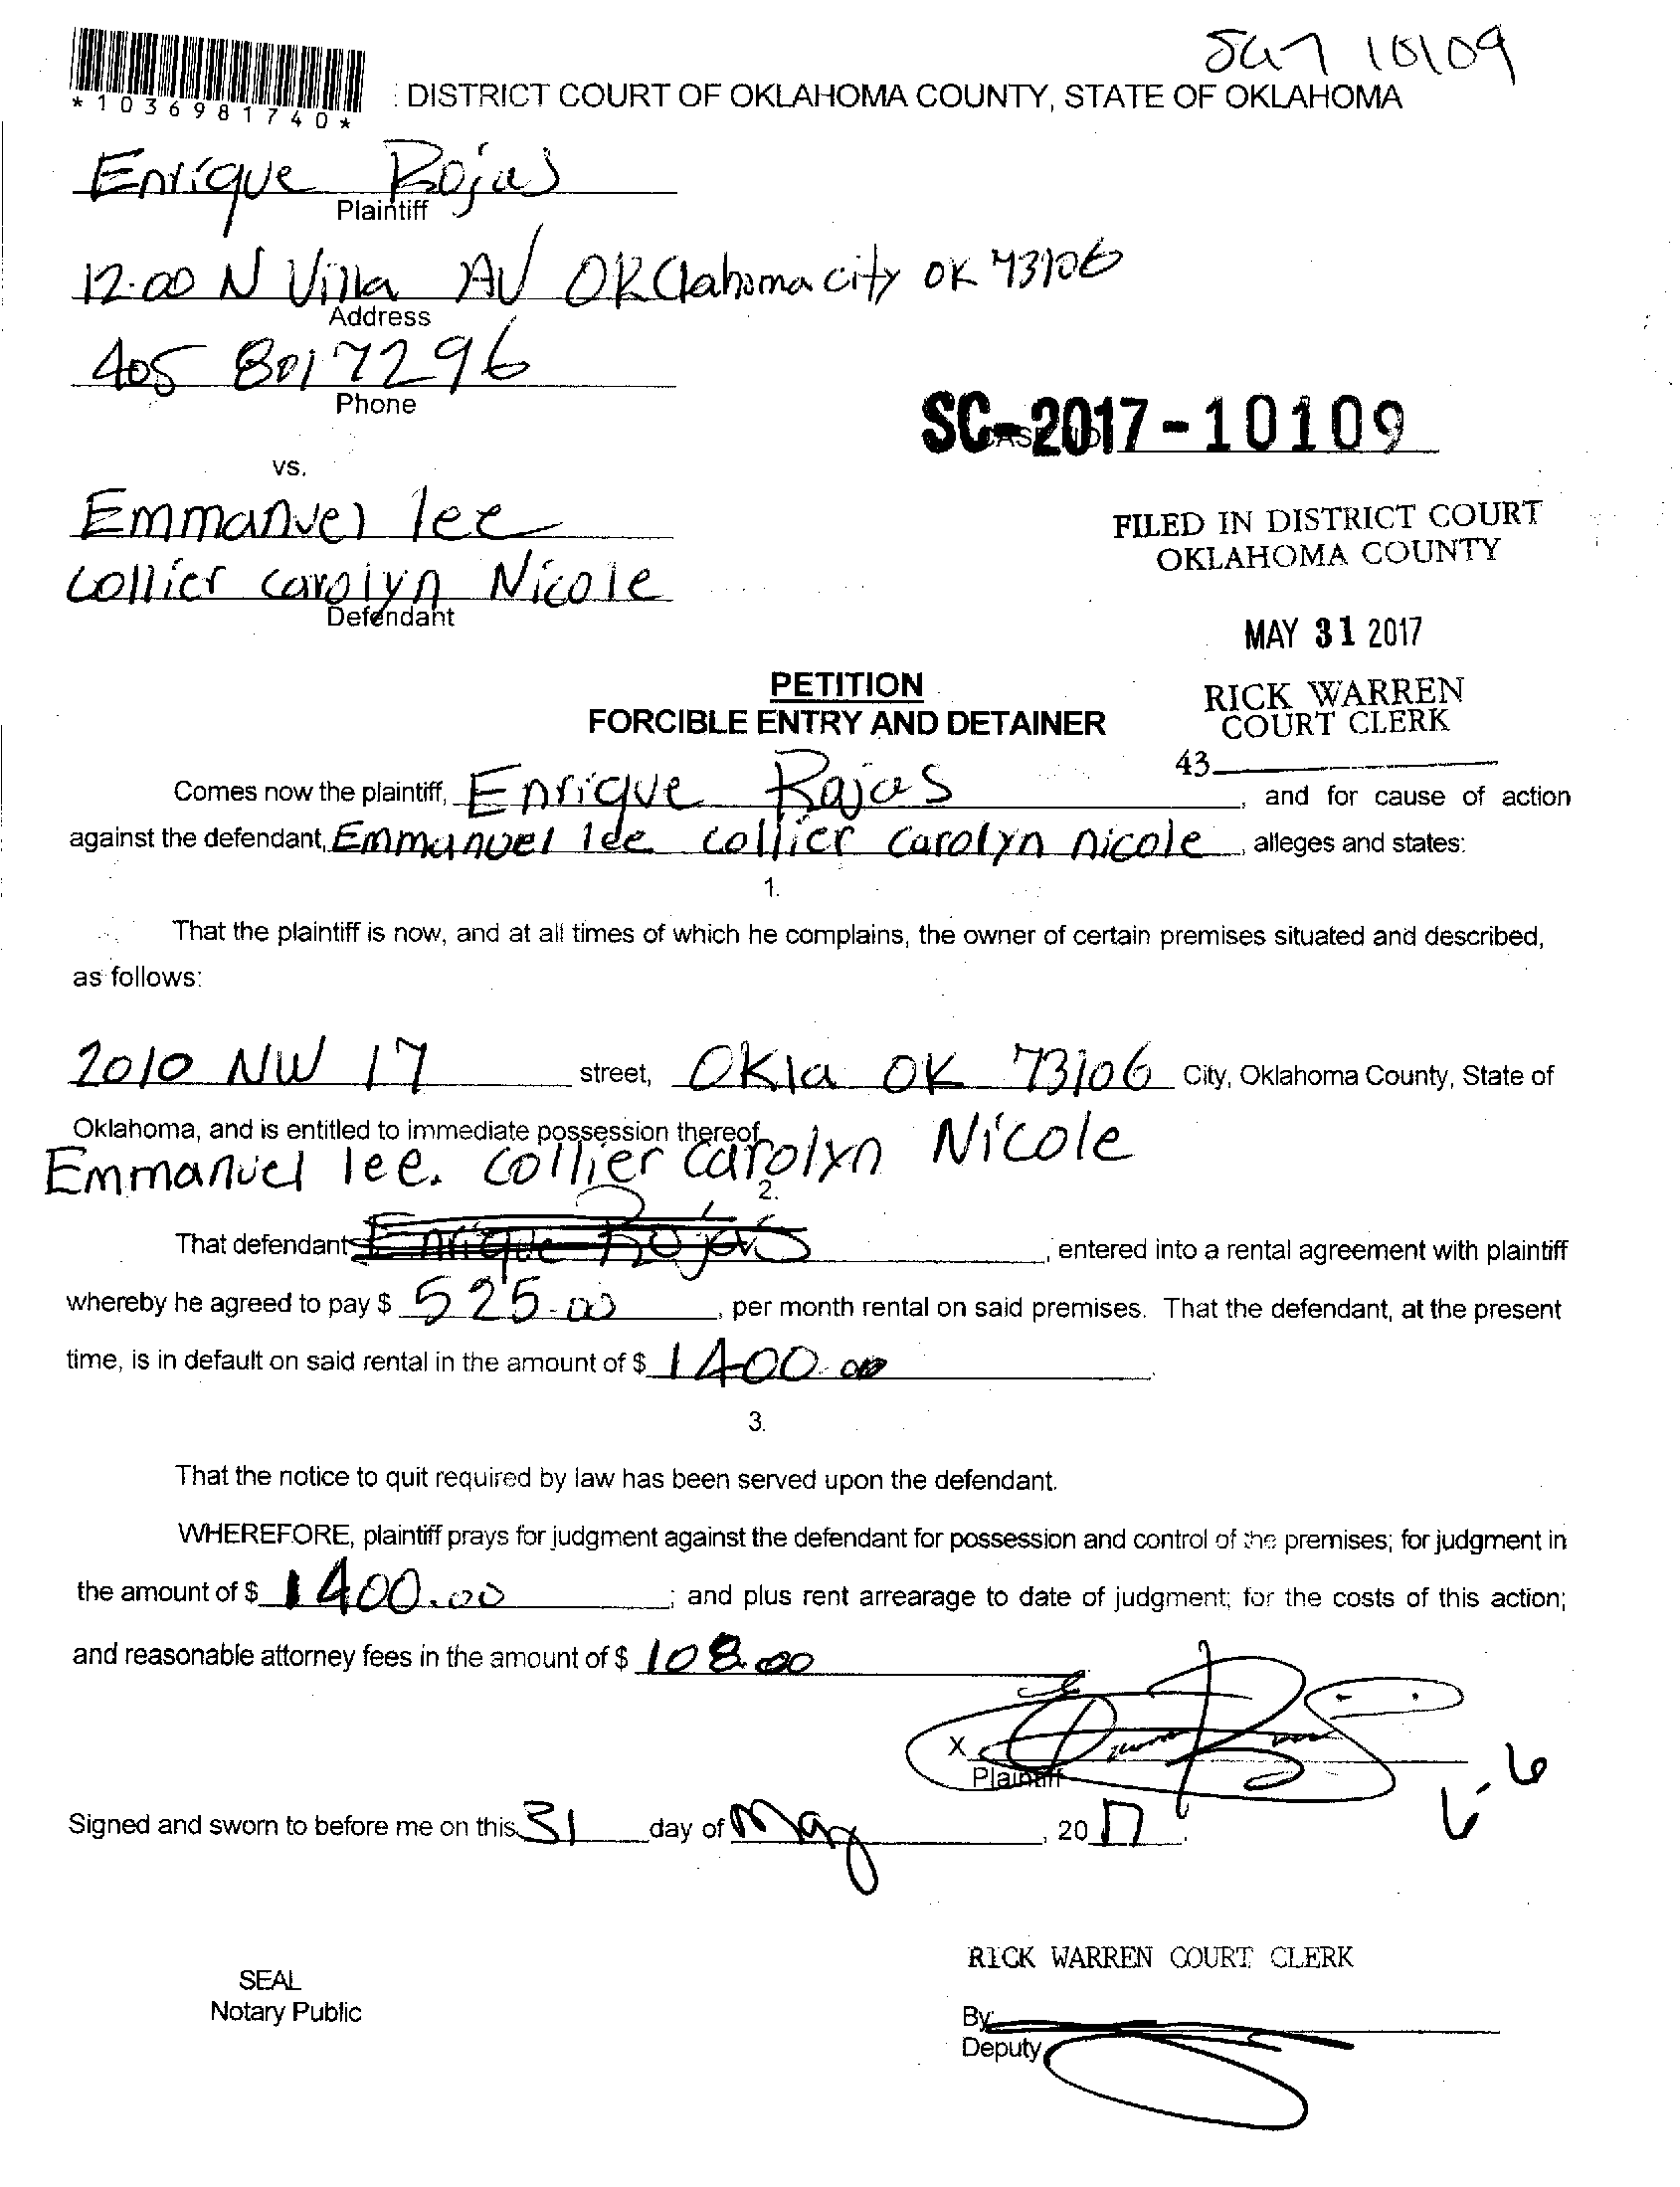 SC17 10109
*1036981740*
DISTRICT COURT OF OKLAHOMA COUNTY, STATE OF OKLAHOMA
Enrique Rojas
Plaintiff
12.00 N Villa AV OKClahoma city OK 73106
Address
405 801 7296
Phone
SC-2017-10109
vs.
Emmanuel lee
collier carolyn Nicole
Defendant
FILED IN DISTRICT COURT
OKLAHOMA COUNTY
MAY 31 2017
RICK WARREN
COURT CLERK
43
PETITION
FORCIBLE ENTRY AND DETAINER
Comes now the plaintiff, Enrique Rojas, and for cause of action
against the defendant, Emmanuel lee collier carolyn nicole, alleges and states:
1.
That the plaintiff is now, and at all times of which he complains, the owner of certain premises situated and described,
as follows:
2010 NW 17 street, Okla OK 73106 City, Oklahoma County, State of
Oklahoma, and is entitled to immediate possession thereof.
Emmanuel lee. collier carolyn Nicole
2.
That defendant Enrique Rojas, entered into a rental agreement with plaintiff
whereby he agreed to pay $ 525.00, per month rental on said premises. That the defendant, at the present
time, is in default on said rental in the amount of $ 1400.00.
3.
That the notice to quit required by law has been served upon the defendant.
WHEREFORE, plaintiff prays for judgment against the defendant for possession and control of the premises; for judgment in
the amount of $ 1400.00; and plus rent arrearage to date of judgment; for the costs of this action;
and reasonable attorney fees in the amount of $ 108.00
X
Plaintiff
6-6
Signed and sworn to before me on this 31 day of May, 2017.
RICK WARREN COURT CLERK
SEAL
Notary Public
By
Deputy